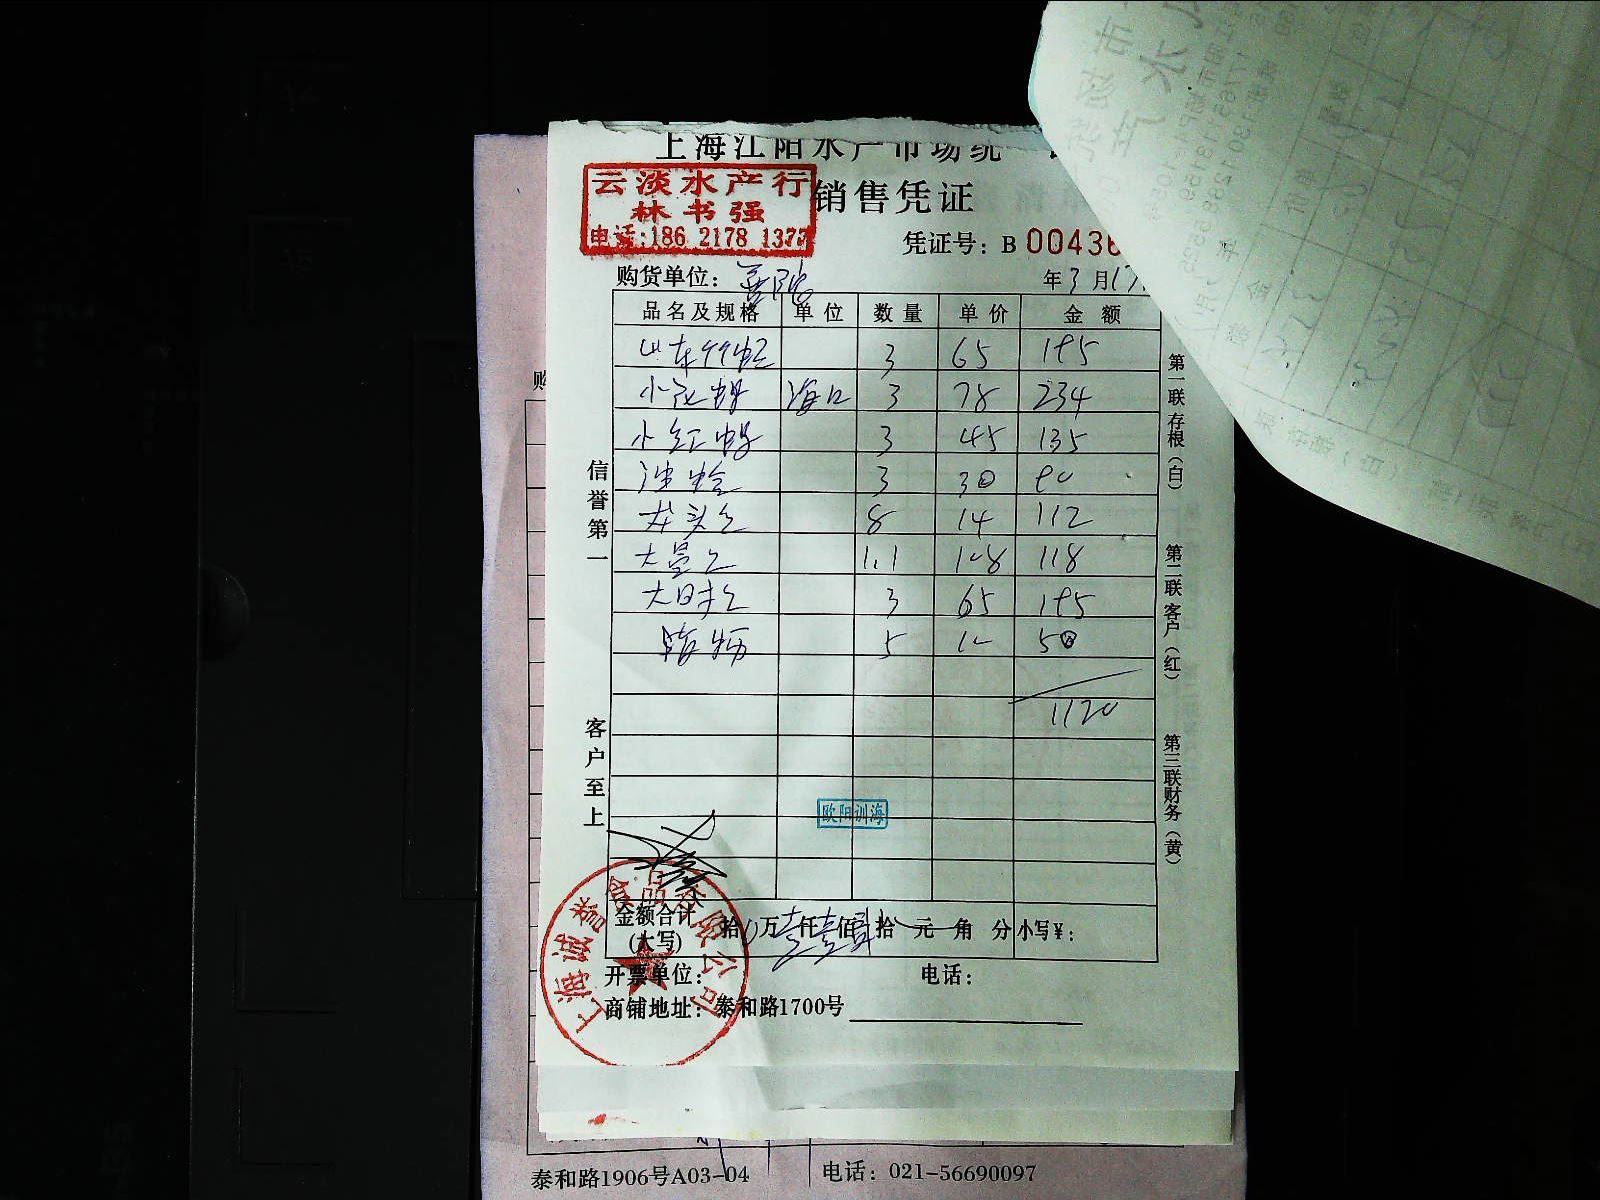 上海江阳水产市场统一
云淡水产行
林书强
电话:186 2178 1377
销售凭证
凭证号: B 00436
购货单位:
年 3 月 17
品名及规格 单位 数量 单价 金额
山东竹蛏 3 65 195
小花蛤 海口 3 78 234
小红蛤 3 45 135
油蛤 3 30 90
龙头仑 8 14 112
大曼仑 1.1 108 118
3 65 195
5 10 50
1120
信誉第一
客户至上
第一联存根(白)
第二联客户(红)
第三联财务(黄)
欧阳训海
上海诚誉食品有限公司
金额合计
(大写)
拾 万 壹 仟 壹 佰 贰 拾 元 角 分 小写¥:
开票单位: 电话:
商铺地址: 泰和路1700号
泰和路1906号A03-04 电话: 021-56690097